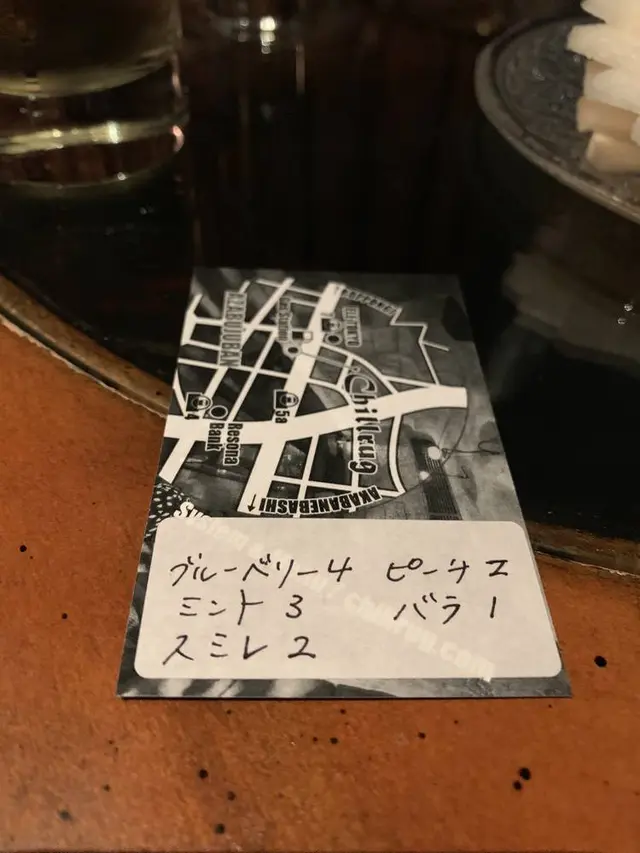 AZABUJUBAN
Fire Station
Chillrug
5a
4
Resona
Bank
AKABANEBASHI↑
ブルーベリー4 ピーナ2
ミント3 バラ1
スミレ2